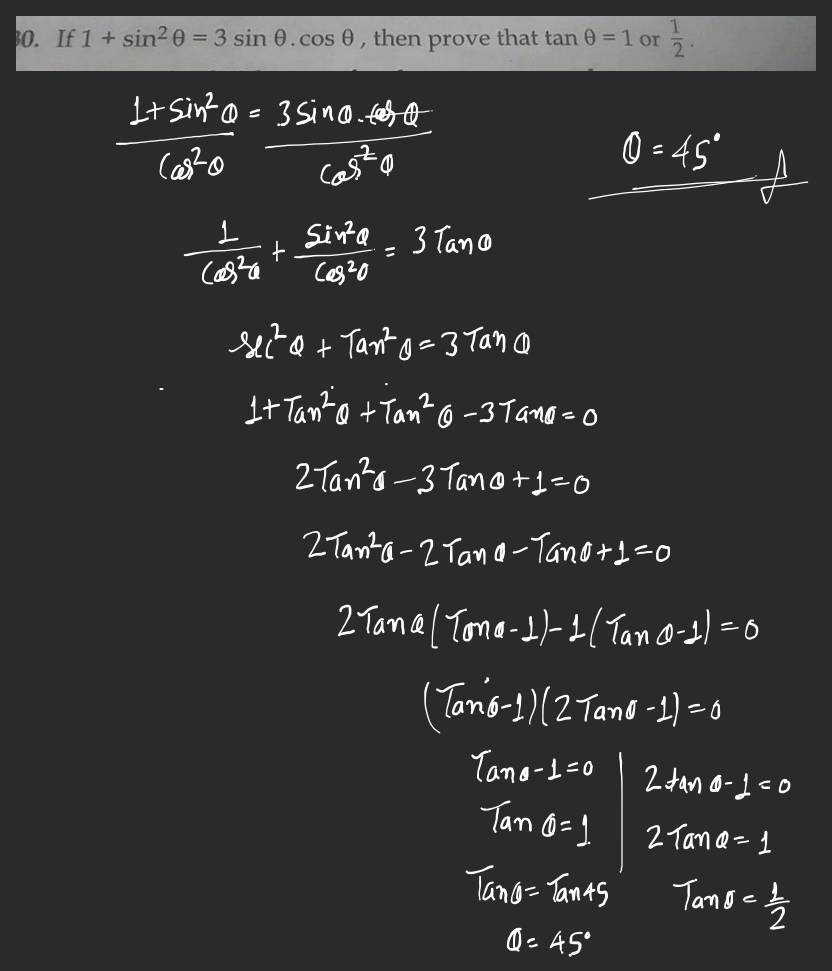 30. If 1 + sin² θ = 3 sin θ . cos θ , then prove that tan θ = 1 or 1/2 .
(1 + Sin² θ)/(Cos² θ) = (3 Sin θ . Cos θ)/(Cos² θ)
θ = 45°
1/(Cos² θ) + (Sin² θ)/(Cos² θ) = 3 Tan θ
Sec² θ + Tan² θ = 3 Tan θ
1 + Tan² θ + Tan² θ - 3 Tan θ = 0
2 Tan² θ - 3 Tan θ + 1 = 0
2 Tan² θ - 2 Tan θ - Tan θ + 1 = 0
2 Tan θ (Tan θ - 1) - 1 (Tan θ - 1) = 0
(Tan θ - 1) (2 Tan θ - 1) = 0
Tan θ - 1 = 0
Tan θ = 1
Tan θ = Tan 45
θ = 45°
2 tan θ - 1 = 0
2 Tan θ = 1
Tan θ = 1/2